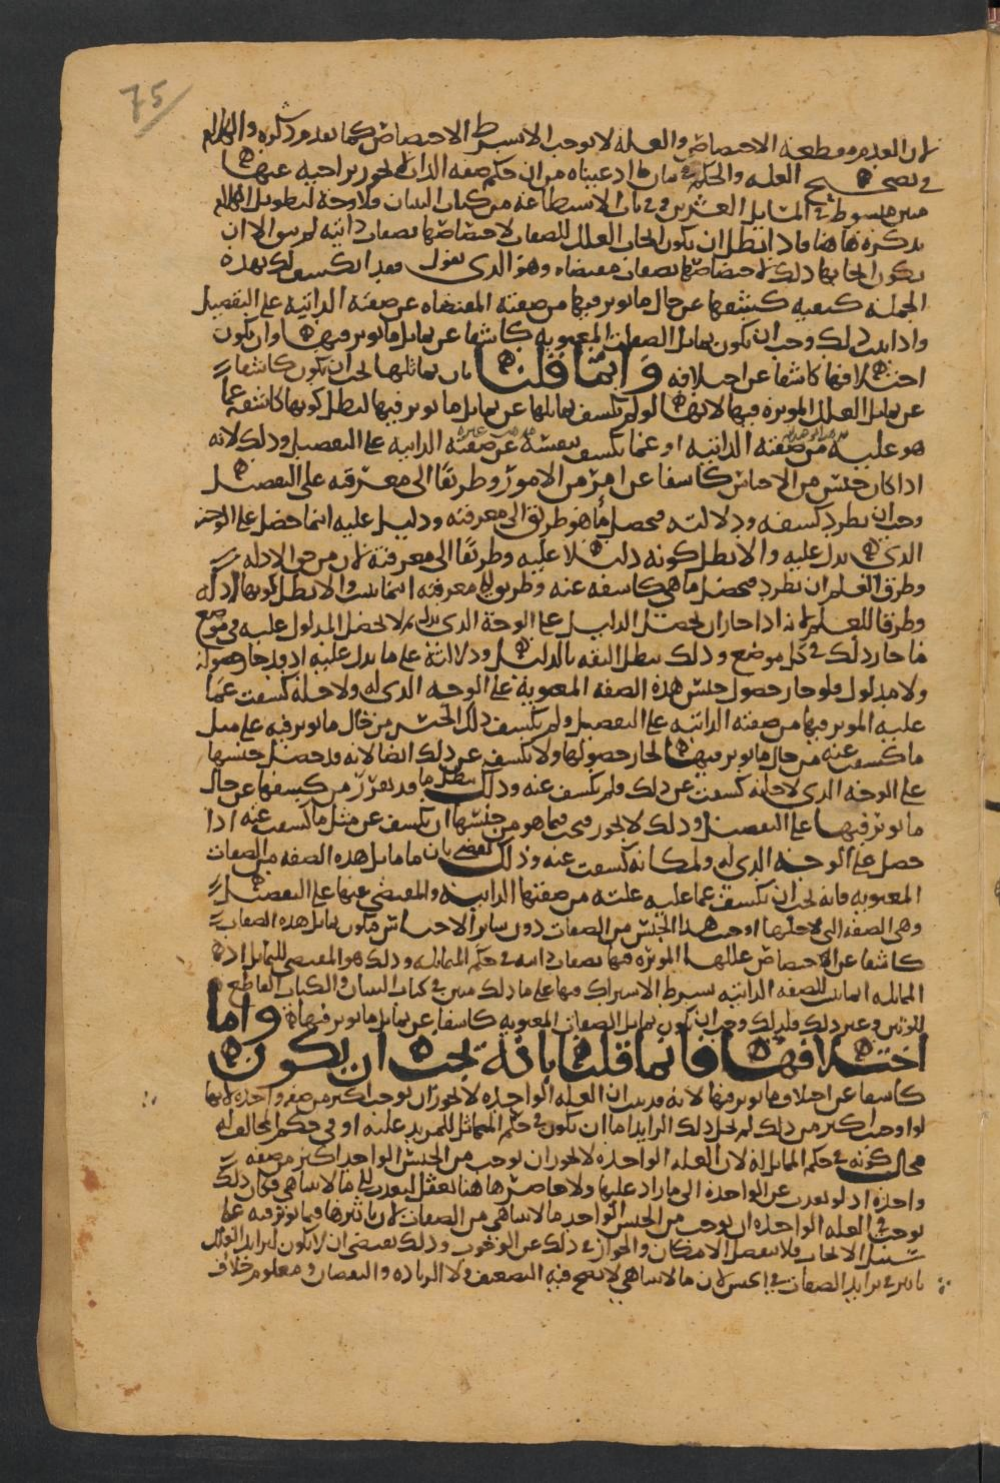 75
لان العدم مقطعة الاختصاص والعلة لا توجب الا بشرط الاختصاص كما تقدم ذكره والكلام
في تصحيح العلة والحكم فان ما ادعيناه من ان حكم صفة الذات لا يجوز تراخيه عنها
مبين مبسوط في المسايل العشرين وفي باب الاستطاعة من كتاب البيان ولا وجه لتطويل الكلام
بذكره هاهنا فاذا بطل ان يكون ايجاب العلل للصفات لاختصاصها بصفات ذاتية لم يبق الا ان
يكون ايجابها ذلك لاختصاصها بصفات مقتضاه وهو الذي نقول فقد انكشف لك بهذه
الجملة كيفية كشفها عن حال ما يوثر فيها من صفته المقتضاه عن صفته الذاتية على التفصيل
واذا ثبت ذلك وجب ان يكون تماثل الصفات المعنوية كاشفا عن تماثل ما يوثر فيها وان يكون
اختلافها كاشفا عن اختلافه وانما قلنا بان تماثلها يجب ان يكون كاشفا
عن تماثل العلل الموثرة فيها لانها لو لم تكشف تماثلها عن تماثل ما يوثر فيها لبطل كونها كاشفة عما
هو عليه من صفته الذاتية او عما يكشف بنفسه عن صفته الذاتية على التفصيل وذلك لانه
اذا كان جنس من الاجناس كاشفا عن امر من الامور وطريقا الى معرفته على التفصيل
وجب ان يطرد كشفه ودلالته فيحصل ما هو طريق الى معرفته ودليل عليه اينما حصل على الوجه
الذي يدل عليه والا بطل كونه دليلا عليه وطريقا الى معرفته لان من حق الادلة
وطرق العلم ان تطرد فيحصل ما هي كاشفة عنه وطريق الى معرفته اينما ثبتت والا بطل كونها ادلة
وطرقا للعلم لانه اذا جاز ان يحصل الدليل على الوجه الذي يدل ثم لا يحصل المدلول عليه في موضع
ما جاز ذلك في كل موضع وذلك يبطل الثقة بالدليل ودلالته على ما يدل عليه اذ قد جاز حصوله
ولا مدلول فلو جاز حصول جنس هذه الصفة المعنوية على الوجه الذي له ولاجله كشفت عما
عليه الموثر فيها من صفته الذاتية على التفصيل ولم يكشف ذلك الجنس من حال ما يوثر فيه على مثل
ما كشفت عنه من حال ما يوثر فيها لجاز حصولها ولا تكشف عن ذلك ايضا لانه قد حصل جنسها
على الوجه الذي لاجله كشفت عن ذلك ولم يكشف عنه وذلك يبطل ما قد تقرر من كشفها عن حال
ما يوثر فيها على التفصيل وذلك لا يجوز فيجب فيما هو من جنسها ان يكشف عن مثل ما كشفت عنه اذا
حصل على الوجه الذي له ولمكانه كشفت عنه وذلك يقضي بان ما ماثل هذه الصفة من الصفات
المعنوية فانه يجب ان يكشف عما عليه علته من صفتها الذاتية والمقتضى عنها على التفصيل
وهي الصفة التي لاجلها اوجب هذا الجنس من الصفات دون ساير الاجناس فيكون تماثل هذه الصفات
كاشفا عن الاختصاص عللها الموثرة فيها بصفات ذاتية في حكم المتماثلة وذلك هو المقتضي للتماثل اذ
المماثلة انما تثبت للصفة الذاتية بشرط الاشتراك فيها على ما ذلك مبين في كتاب البيان والكتاب القاطع
للوتين وغير ذلك فلذلك وجب ان يكون تماثل الصفات المعنوية كاشفا عن تماثل ما يوثر فيها واما
اختلافها فانما قلنا بانه يجب ان يكون
كاشفا عن اختلاف ما يوثر فيها لانه قد ثبت ان العلة الواحدة لا يجوز ان توجب اكثر من صفة واحدة لانها
لو اوجبت اكثر من ذلك لم يخل ذلك الزايد اما ان يكون في حكم المماثل للمزيد عليه او في حكم المخالف له
محال كونه في حكم المماثل له لان العلة الواحدة لا يجوز ان توجب من الجنس الواحد اكثر من صفة
واحدة اذ لو تعدت عن الواحدة الى ما زاد عليها ولا حاصر هاهنا يعقل لتعدت الى ما لا يتناهى فكان ذلك
يوجب في العلة الواحدة ان توجب من الجنس الواحد ما لا يتناهى من الصفات لان تاثيرها فيما توثر فيه على
سبيل الايجاب فلا ينفصل الامكان والجواز في ذلك عن الوجوب وذلك يقتضي ان لا يكون لتزايد العلل
تاثير في تزايد الصفات لان ما لا يتناهى لا يصح فيه التضعيف ولا الزيادة والنقصان ومعلوم خلاف